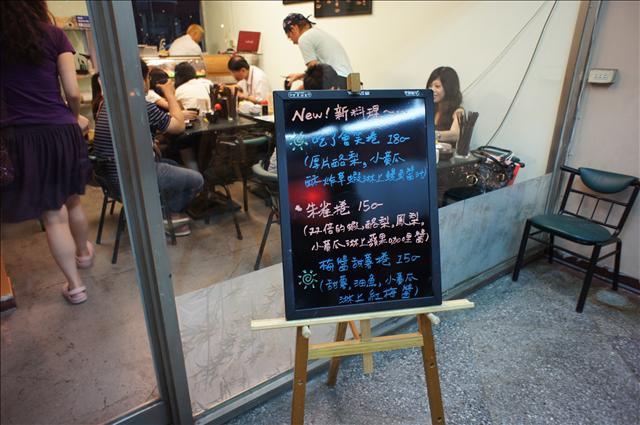 New! 新料理~
吃了會笑捲 180-
(厚片酪梨, 小黃瓜
酥炸草蝦淋上鰻魚醬汁)
朱雀捲 150-
(双倍的蝦, 酪梨, 鳳梨,
小黃瓜淋上蘋果醬)
梅醬甜蔘捲 150-
(甜蔘, 油魚, 小黃瓜
淋上紅梅醬)